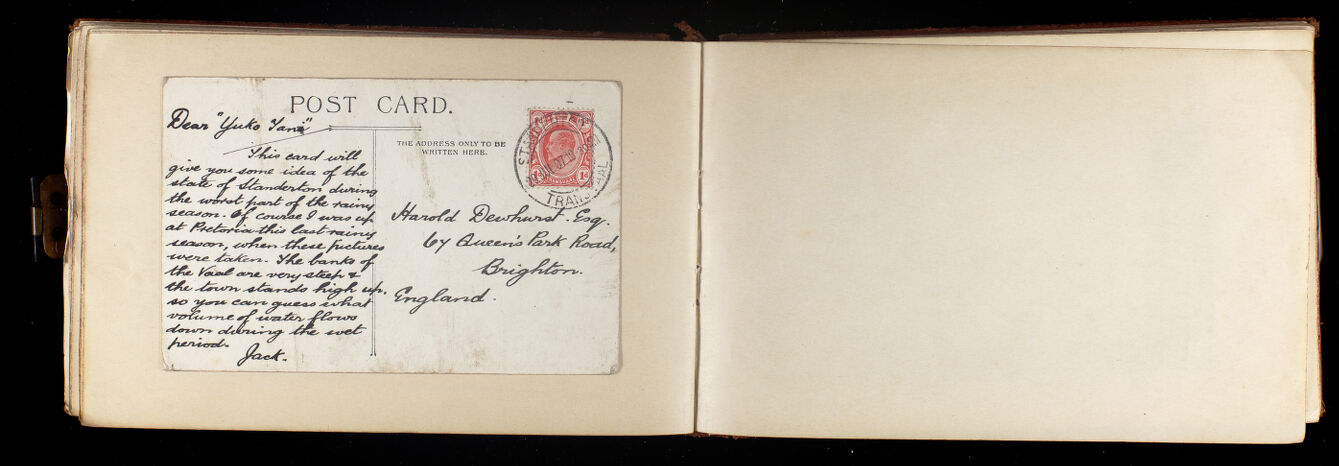 POST CARD.
Dear "Yuko Yama"
This card will
give you some idea of the
state of Standerton during
the worst part of the rainy
season. Of course I was up
at Pretoria this last rainy
season, when these pictures
were taken. The banks of
the Vaal are very steep &
the town stands high up,
so you can guess what
volume of water flows
down during the wet
period.
Jack.
THE ADDRESS ONLY TO BE
WRITTEN HERE.
TRANSVAAL
1d
Harold Dewhurst. Esq.
67 Queen's Park Road,
Brighton.
England.